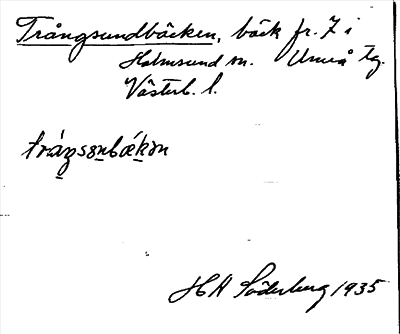 Trångsundbäcken, bäck fr. 7 i
Holmsund sn. Umeå tg.
Västerb. l.
tråŋsɷnbækən
H H Söderberg 1935